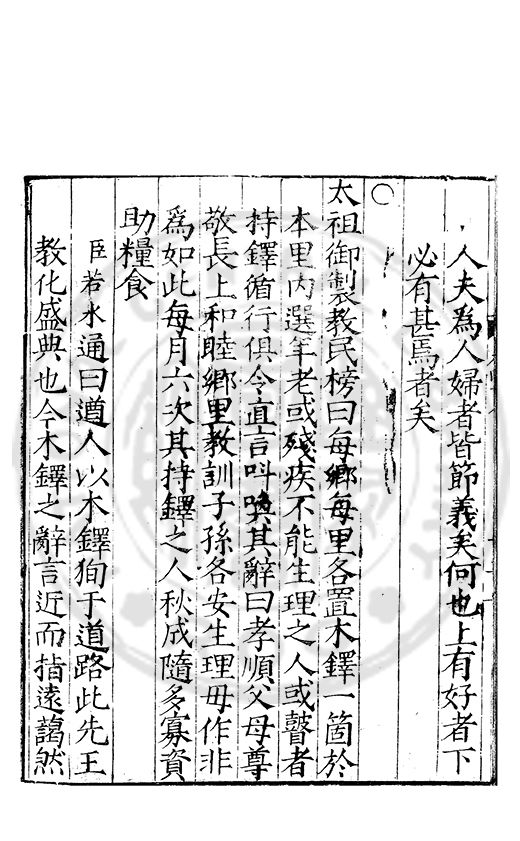 人夫為人婦者皆節義矣何也上有好者下
必有甚焉者矣
○
太祖御製教民榜曰每鄉每里各置木鐸一箇於
本里內選年老或殘疾不能生理之人或瞽者
持鐸循行俱令直言叫喚其辭曰孝順父母尊
敬長上和睦鄉里教訓子孫各安生理毋作非
為如此每月六次其持鐸之人秋成隨多寡資
助糧食
臣若水通曰遒人以木鐸狥于道路此先王
教化盛典也今木鐸之辭言近而指遠藹然